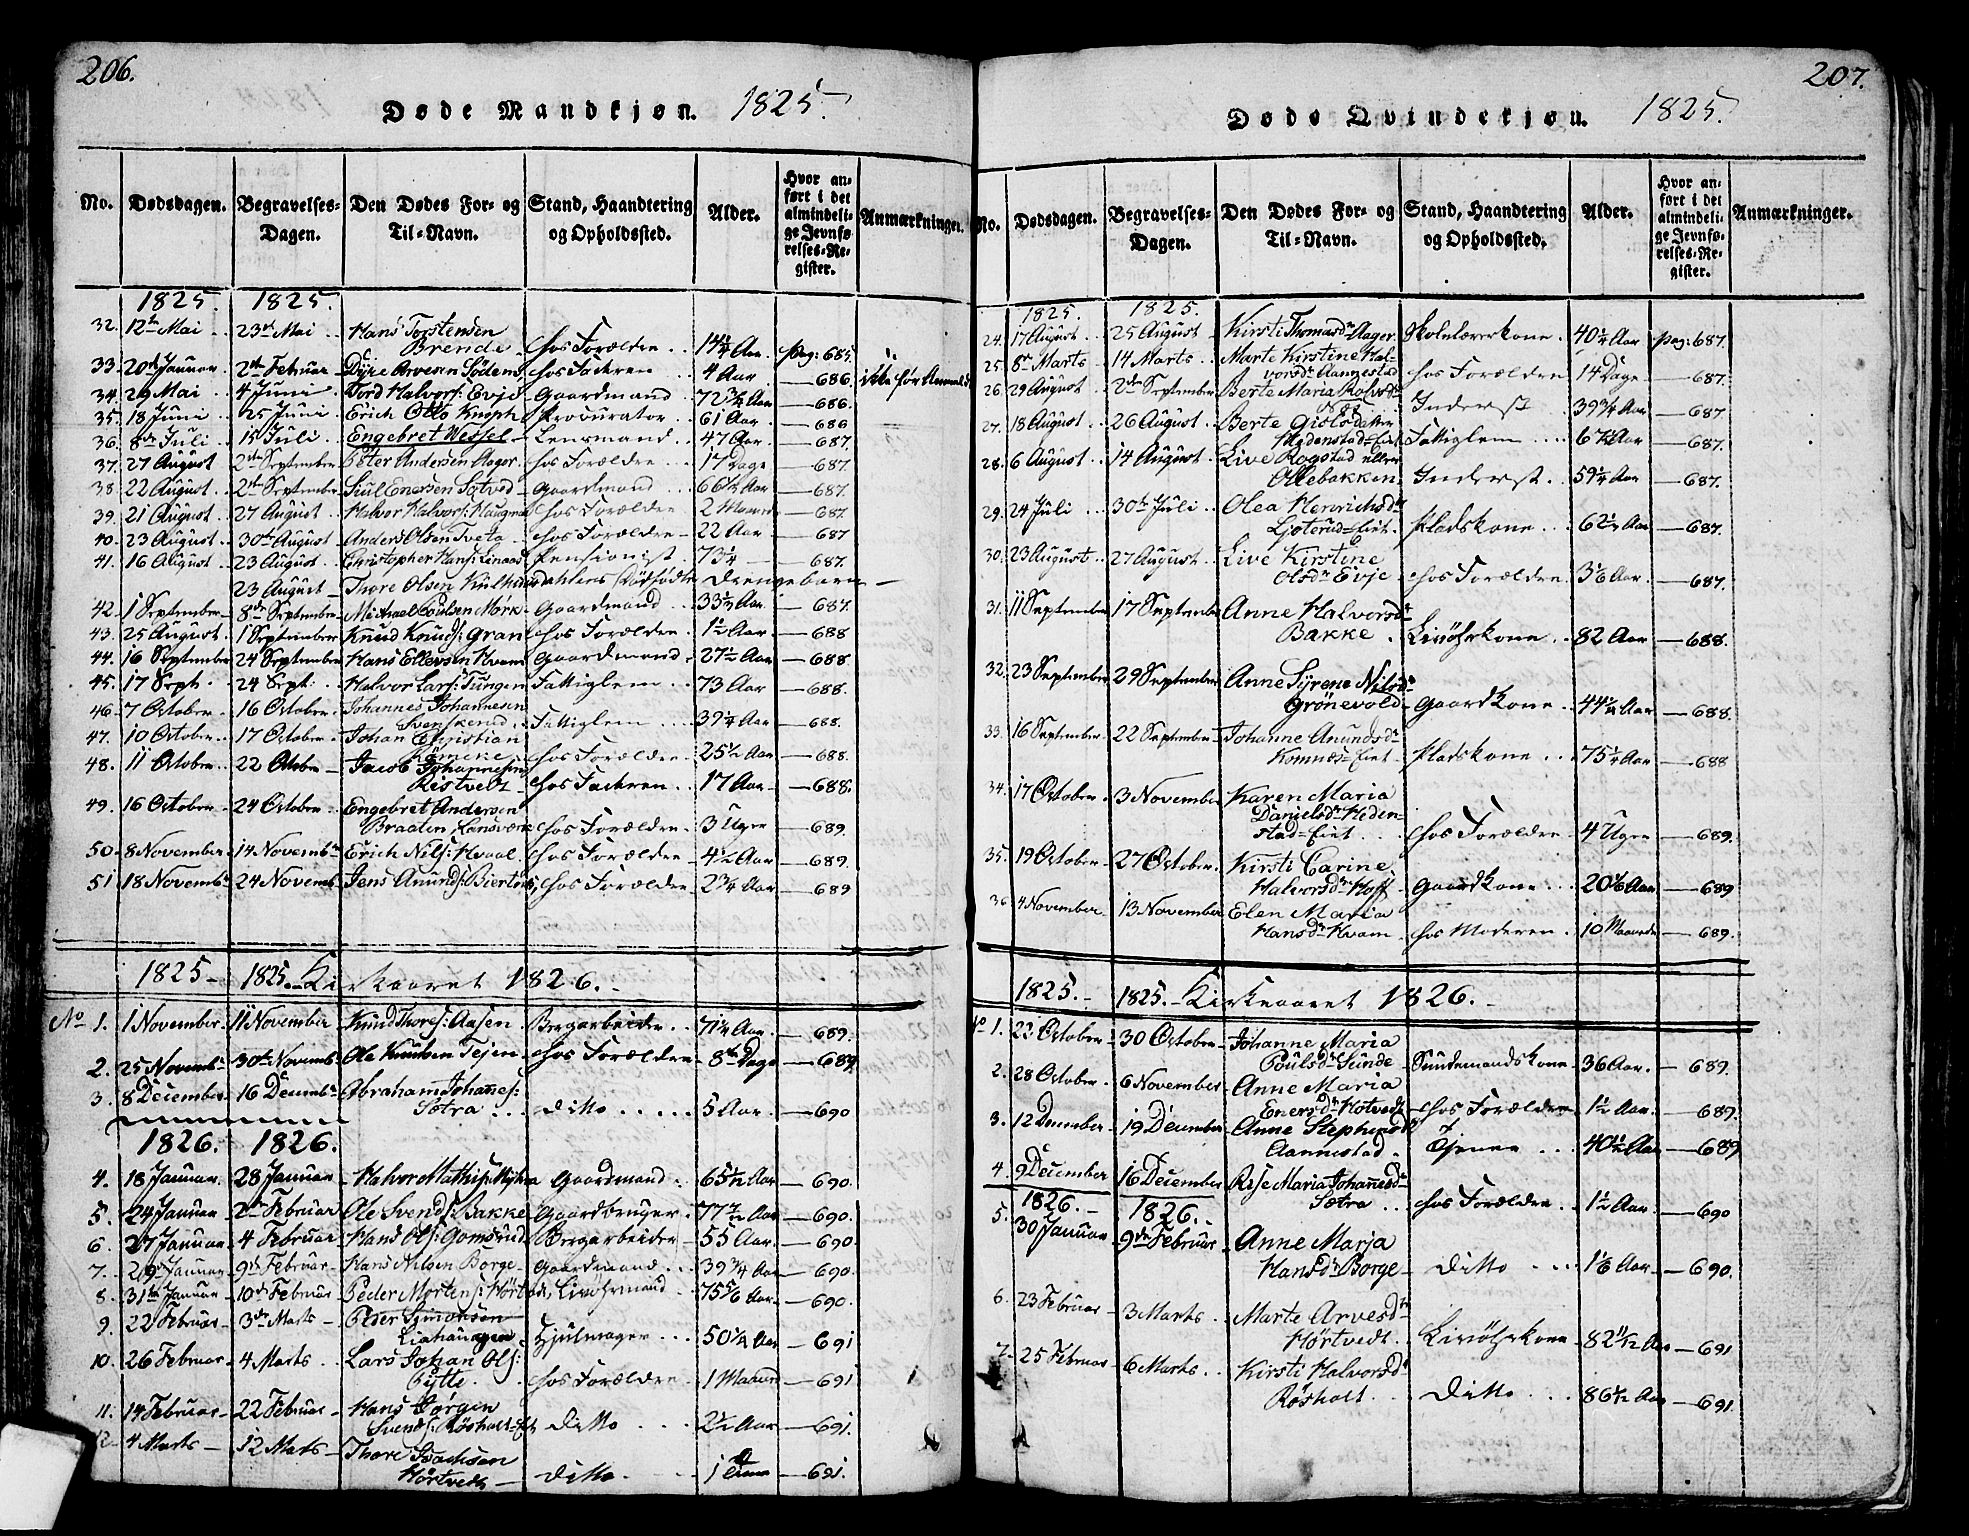 206.
Døde Mandkjøn. 1825.
No. Dødsdagen. Begravelses-Dagen. Den Dødes For- og Til-Navn. Stand, Haandtering og Opholdssted. Alder. Hvor anført i det almindelige Jevnførelses-Register. Anmærkninger.
1825. 1825.
32. 12te Mai 23de Mai Hans Torstensen
Brende hos Forældre Aar pag: 685
33. 20de Januar 2den Februar Sødem hos 4 Aar 686 ikke før Anmeldt
34. 29 Mai 4 Juni Tord Halvors: Evje Gaardmand 72 Aar 686.
35. 18 Juni 25 Juni Erich Otto Knoph Procurator 61 Aar 686
36. 8de Juli 15 Juli Engebret Wessel Lensmand 47 Aar 687.
37. 27 August 2den September Peter Andersen Aager hos Forældre 17 Dage 687.
38. 22 August 2den September Siul Enersen Sotved Gaardmand 66 Aar 687.
39. 21 August 27 August Halvor Halvors: hos Forældre 2 687
40. 23 August 30te August Anders Olsen Tveta hos Forældre 22 Aar 687
41. 16 August 23 August Christopher Hans: Pensionist 73¼ 687.
23 August Thore Olsen Dødfødte Drengebarn
42. 1 September 8de September Michael Poulsen Mørk Gaardmand 33 Aar 687.
43. 25 August 1 September Knud Knuds: Gran hos Forældre 1½ Aar 688
44. 16 September 24 September Hans Ellevsen Kvam Gaardmand 27½ Aar 688
45. 17 Sept. 24 Sept. Halvor Lars: Tungen Fattiglem 73 Aar 688.
46. 7 October 16 October Johannes Johannesen
Svenskerud Fattiglem 39¼ Aar 688.
47. 10 October 17 October Johan Christian
hos Forældre 25½ Aar 688
48. 11 October 22 October Jacob Johannesen
Ristvedt hos 17 Aar 688.
49. 16 October 24 October Engebret Andersen
Braaten hos Forældre 3 Uger 689.
50. 8 November 14 Novembr Erich Nils: Hvaal hos Forældre 4½ Aar 689.
51 18 Novembr 24 Novemb Jens Anunds: hos Forældre 2¾ Aar 689
1825 1825. Kirkeaaret 1826.
No 1. 1 November 11 November Knud Thores: Aasen Bergarbeider 71¼ Aar 689.
2. 25 Novemb 30te Novemb Ole Knudsen Tejen hos Forældre 8te Dage 689
3. 8 December 16 Decemb Abraham Johanes:
Sotra ditto 5 Aar 690
1826. 1826.
4. 18 Januar 28 Januar Halvor Mathis: Gaardmand 65½ Aar 690.
5. 24 Januar 2den Februar Ole Svends: Bakke Gaardbruger 77 Aar 690.
6. 27 Januar 4 Februar Hans Ols: Gomsrud Bergarbeider 55 Aar 690.
7. 29 Januar 9de Februar Hans Nilsen Borge Gaardmand 39¾ Aar 690.
8. 31te Januar 10de Februar Peder Mortens: Livøhrmand 75 5/6 Aar 690.
9. 22 Februar 3de Marts Peder Simonsen
Liahaugen Hjulmager 50¼ Aar 691
10. 26 Februar 4 Marts Lars Johan Ols:
Pytte. hos Forældre 1 Maaned 691
11. 14 Februar 22 Februar Hans Jørgen
Svends: Røsholt-Eiet ditto 2½ Aar 691.
12. 4 Marts 12 Marts Thore Isachsen
Hørtvedt ditto 1 691.
207.
Døde Qvindekjøn. 1825.
No. Dødsdagen. Begravelses-Dagen. Den Dødes For- og Til-Navn. Stand, Haandtering og Opholdssted. Alder. Hvor anført i det almindelige Jevnførelses-Register. Anmærkninger.
1825. 1825.
24. 17 August 25 August Kirsti Thomasdr Aager Skolelærerkone 40½ Aar pag: 687.
25. 8de Marts 14 Marts Marte Kirstine Hal-
vorsdr Aannestad hos Forældre 14 Dage 687.
26. 29 August 2den September Berte Maria
Inderst 39¾ Aar 687.
27. 18 August 26 August Berte
Hedenstad-Eiet Fattiglem 67½ Aar 687.
28. 6 August 14 August Live Rogstad eller
Ollebakken Inderst 59¼ Aar 687.
29. 24 Juli 30te Juli Olea Henrichsdr
Ljoterud-Eiet Pladskone 62½ Aar 687.
30. 23 August 27 August Live Kirstine
Olsdr Evje hos Forældre 3 1/6 Aar 687.
31. 11 September 17 September Anne Halvorsdr
Bakke Livøhrkone 82 Aar 688.
32. 23 September 29 September Anne Syrene Nilsdr
Grønevold Gaardkone 44¼ Aar 688.
33. 16 September 22 September Johanne Anundsdr
Komnes-Eiet Pladskone 75¼ Aar 688
34. 17 October 3 November Karen Maria
Danielsdr Heden-
stad-Eiet hos Forældre 4 Uger 689.
35. 19 October 27 October Kirsti Carine
Halvorsdr Hoff Gaardkone 20 1/6 Aar 689
36. 4 November 13 November Elen Maria
Hansdr Kvam hos Moderen 10 Maaneder 689.
1825. 1825. Kirkeaaret 1826.
No 1. 22 October 30 October Johanne Maria
Poulsdr Sunde 36 Aar. 689.
2. 28 October 6 November Anne Maria
Enersdr Hotvedt hos Forældre 1½ Aar. 689.
3. 12 December 19 December Anne Stephensdr
Aannestad Tjener 40½ Aar 689
4. 9 December 16 December Maria Johanesdr
Sotra hos Forældre 1½ Aar. 690
1826. 1826.
5. 30 Januar 9de Februar Anne Marja
Hansdr Borge ditto 1 1/6 Aar 690.
6. 23 Februar 3 Marts Marte Arvesdr
Hørtvedt. Livøhrkone 82 11/12 Aar 691
7. 25 Februar 6 Marts Kirsti Halvorsdr
Røsholt ditto 86½ Aar 691.